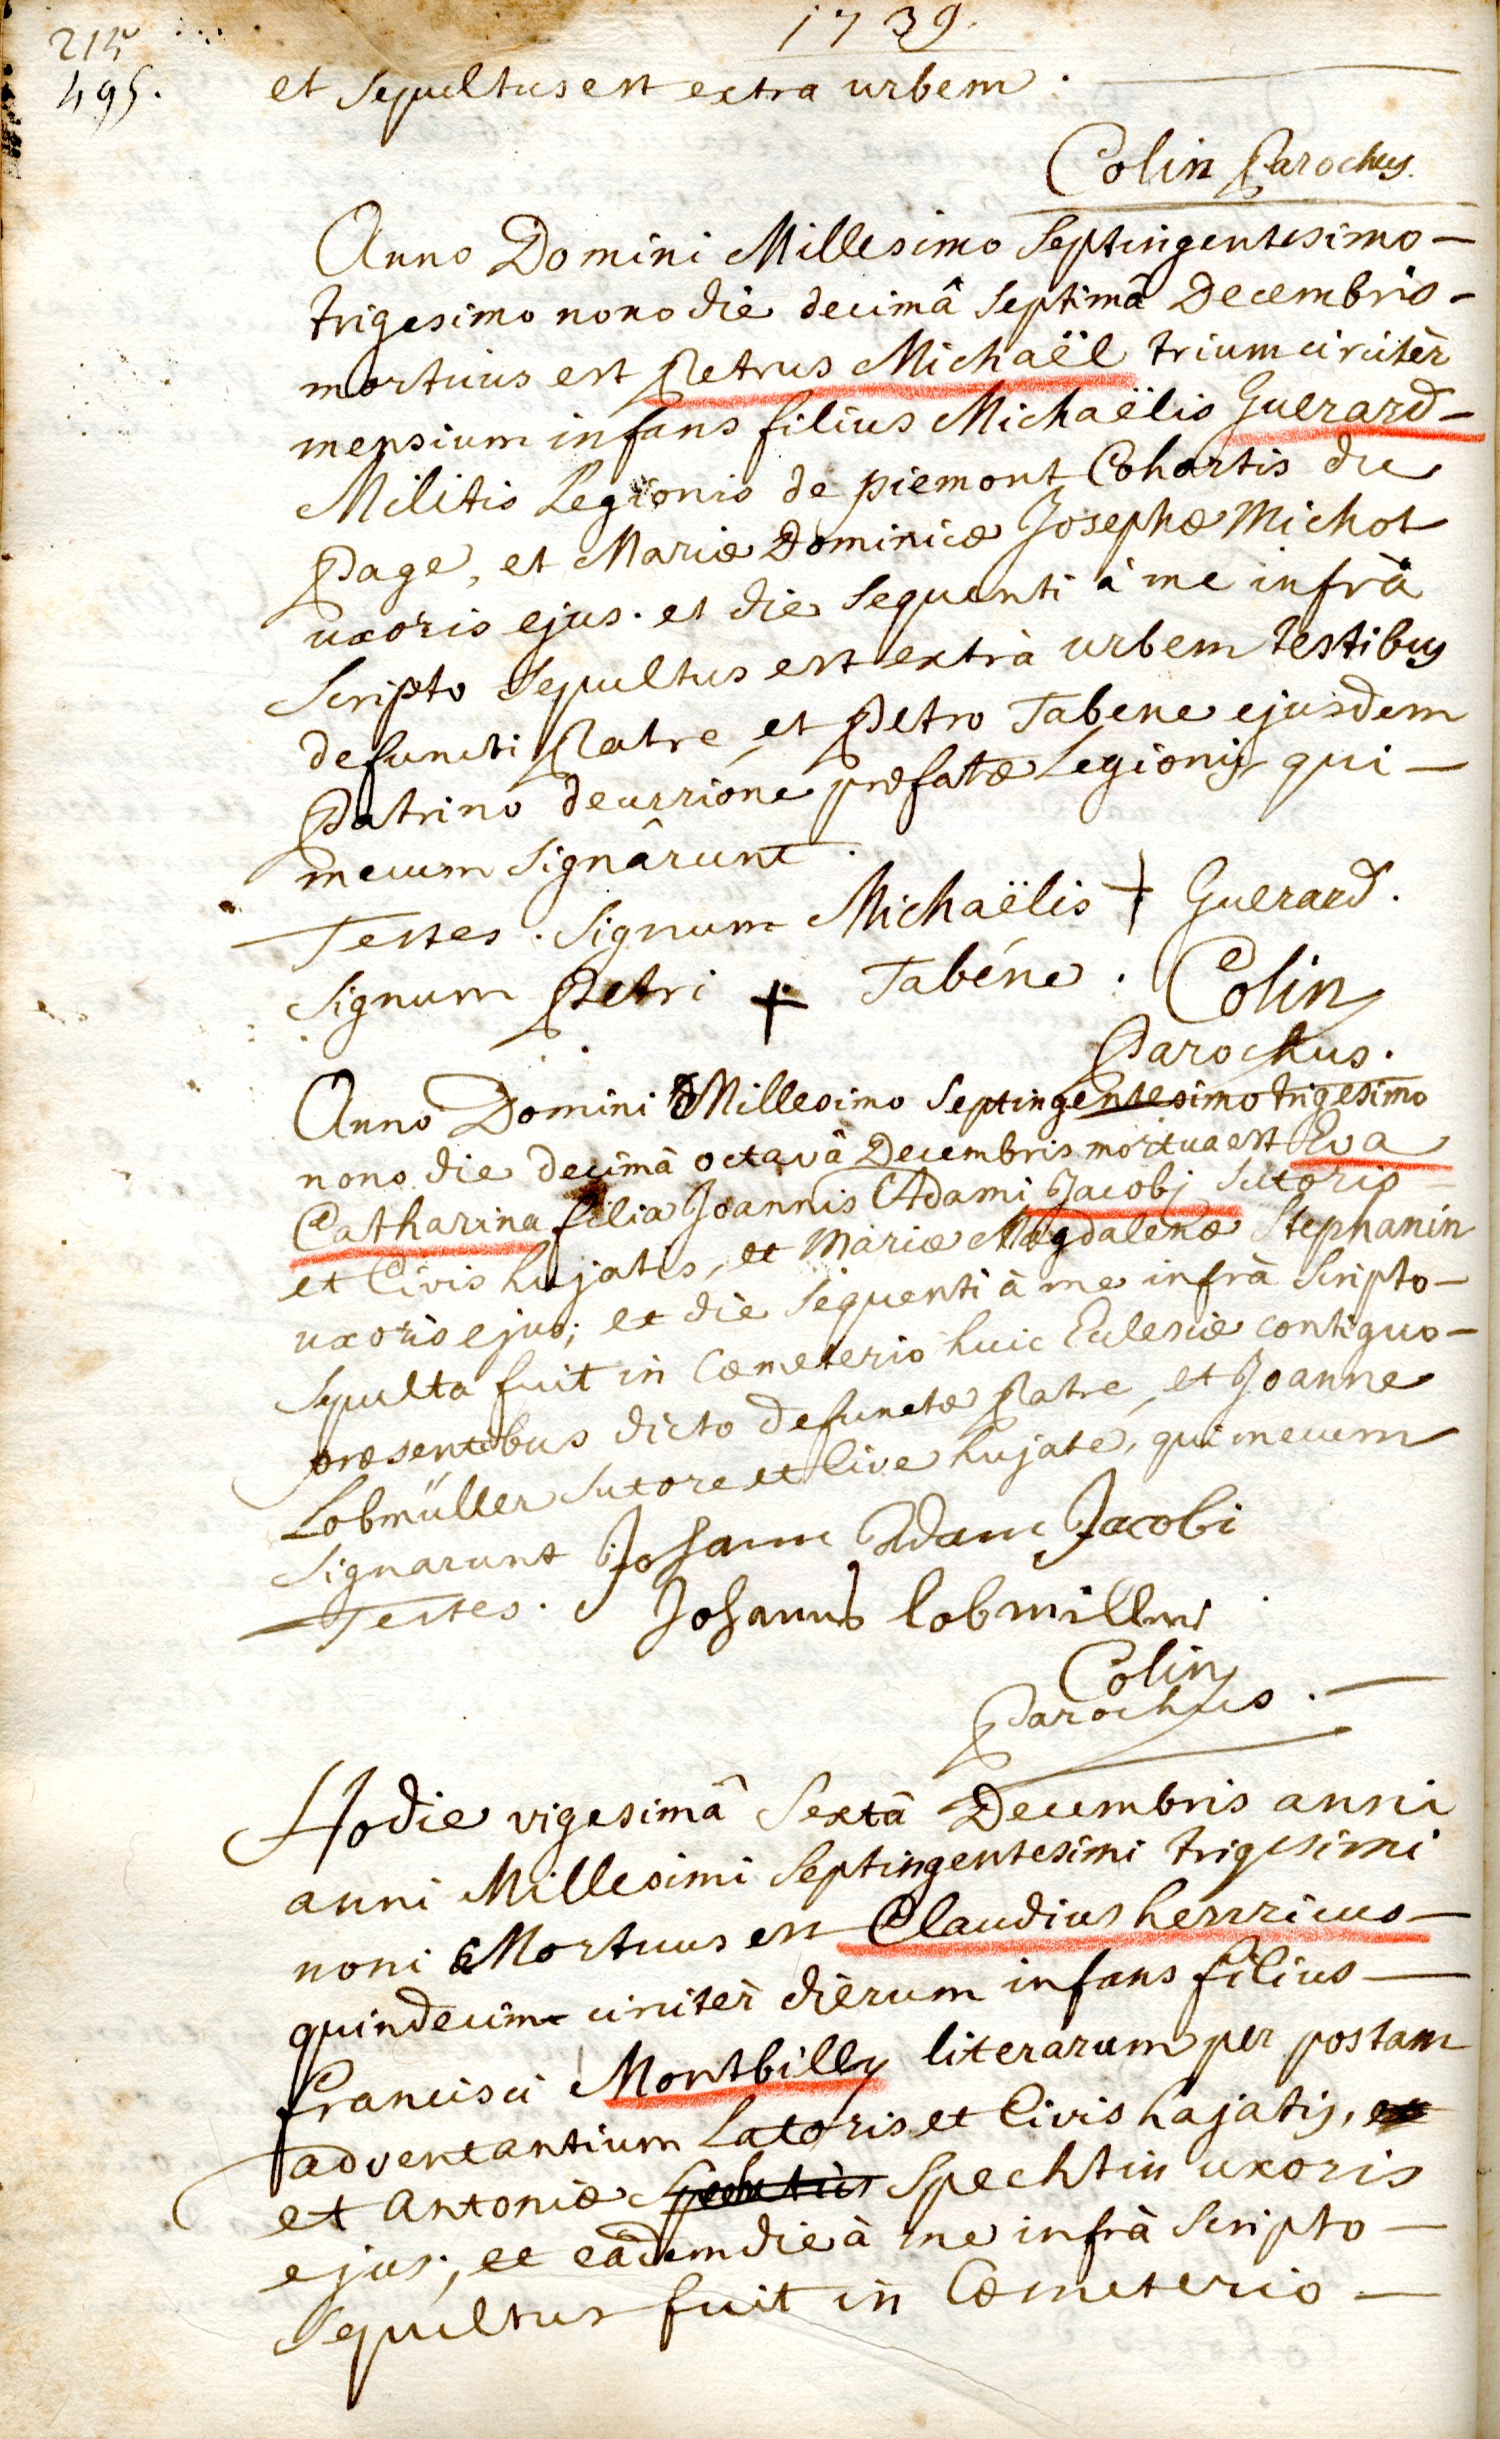 1739.
215
495.
et sepultus est extra urbem.
Colin Parochus.
Anno Domini Millesimo Septingentesimo
trigesimo nono die decimâ septimâ Decembris
mortuus est Petrus Michaël trium circitèr
mensium infans filius Michaëlis Guerard
Militis Legionis de piemont Cohortis du
Page, et Mariæ Dominicæ Josephæ Michot
uxoris ejus. et die sequenti à me infrà
scripto sepultus est extrà urbem testibus
defuncti Patre, et Petro Tabene ejusdem
Patrino decurione præfatæ Legionis qui
mecum signârunt.
Testes. signum Michaëlis + Guerard.
signum Petri + Tabéne. Colin
Parochus.
Anno Domini Millesimo septingentesimo trigesimo
nono die decimâ octavâ Decembris mortua est Eva
Catharina filia Joannis Adami Jacobj sutoris
et Civis hujatis, et Mariæ Magdalenæ Stephanin
uxoris ejus; et die sequenti à me infrà scripto
sepulta fuit in Cæmeterio huic Ecclesiæ contiguo
præsentibus dicto defunctæ Patre, et Joanne
Lobmüller sutore et Cive hujate, qui mecum
signarunt Johann Adam Jacobi
Testes. Johannes lobmiller
Colin
Parochus.
Hodie vigesimâ sextâ Decembris anni
anni Millesimi septingentesimi trigesimi
noni Mortuus est Claudius henricus
quindecim circitèr dierum infans filius
francisci Montbilly literarum per postam
adventantium Latoris et Civis hujatis,
et Antoniæ Spechtin uxoris
ejus; et eâdem die à me infrà scripto
sepultus fuit in Cæmeterio